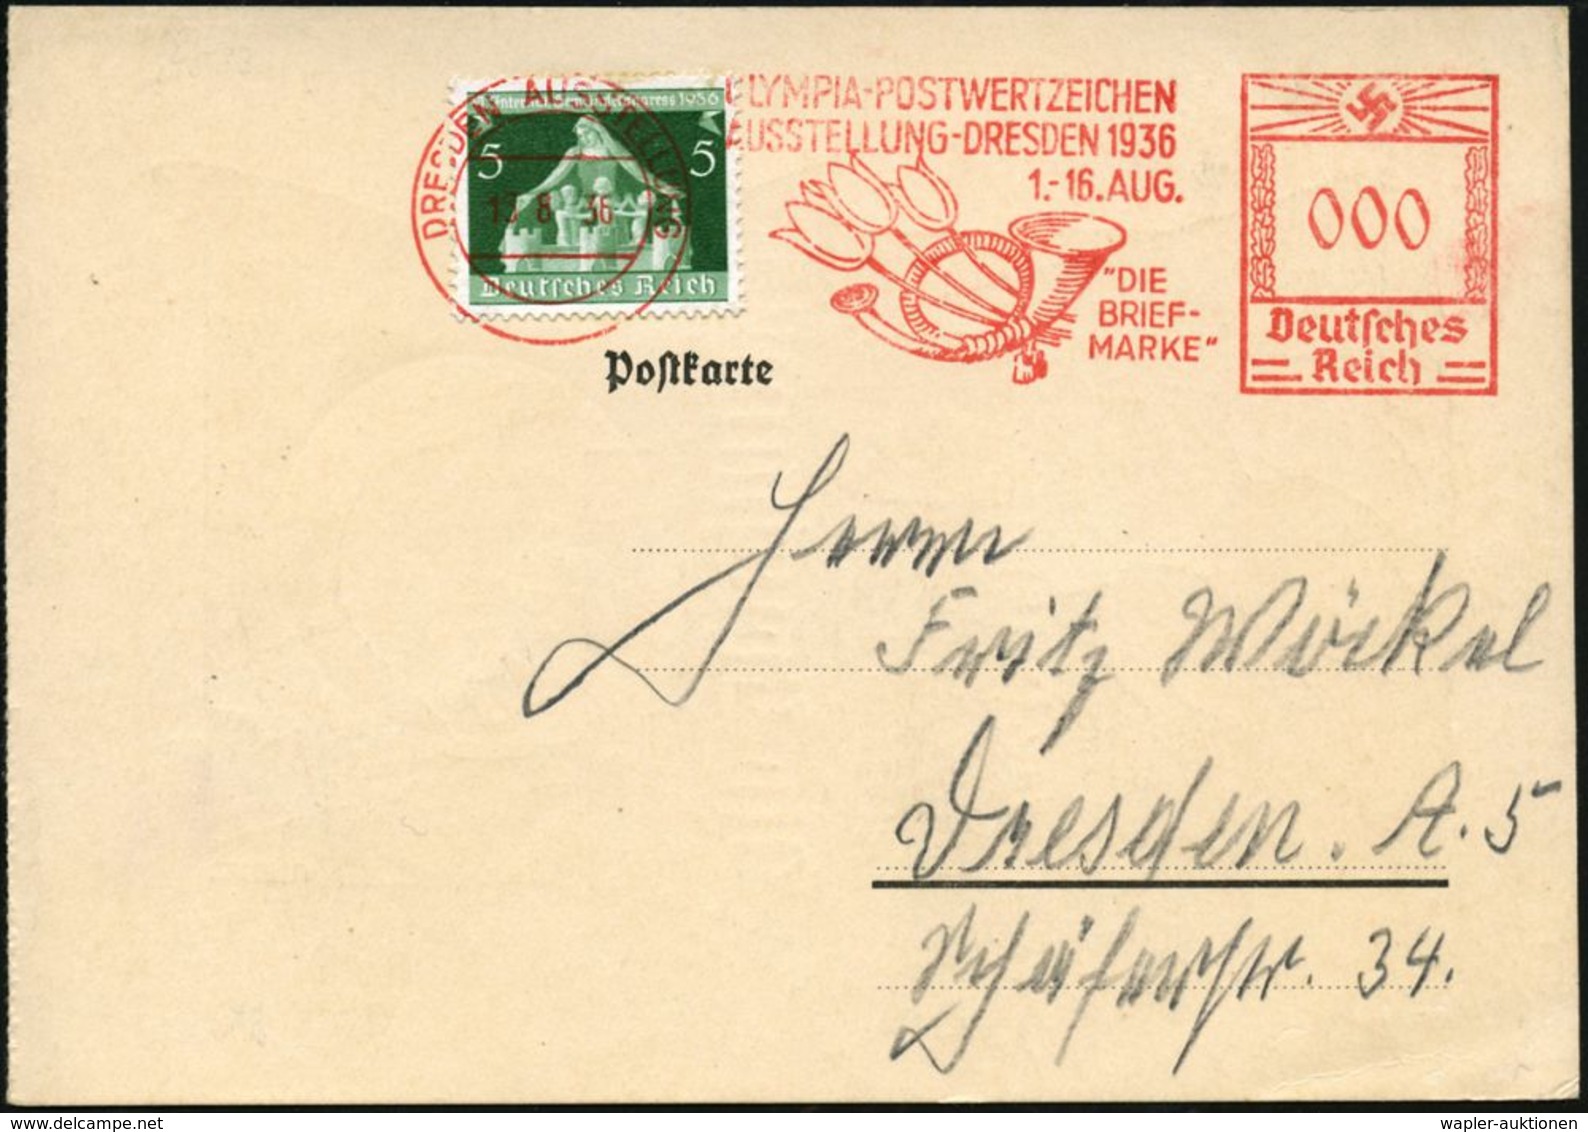 DRESDEN AUSSTELLUNG
8 36
Gemeindekongress 1936
5 5
Deutsches Reich
OLYMPIA-POSTWERTZEICHEN
AUSSTELLUNG-DRESDEN 1936
1.-16. AUG.
"DIE
BRIEF-
MARKE"
000
Deutsches
Reich
Postkarte
Herrn
Fritz Wöckel
Dresden. A. 5
Schäferstr. 34.
wapler-auktionen